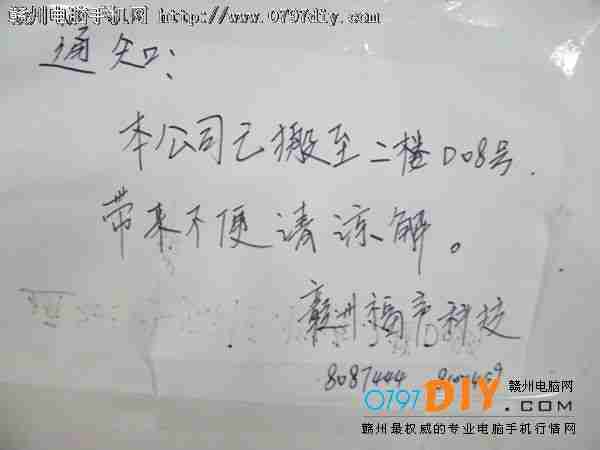 赣州电脑手机网 http://www.0797diy.com
通知：
本公司已搬至二楼D08号.
带来不便请凉解。
赣州福帝科技
8087444
0797DIY.COM 赣州电脑网
赣州最权威的专业电脑手机行情网